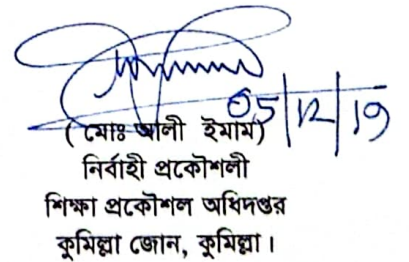 05/12/19
(মোঃ আলী ইমাম)
নির্বাহী প্রকৌশলী
শিক্ষা প্রকৌশল অধিদপ্তর
কুমিল্লা জোন, কুমিল্লা।